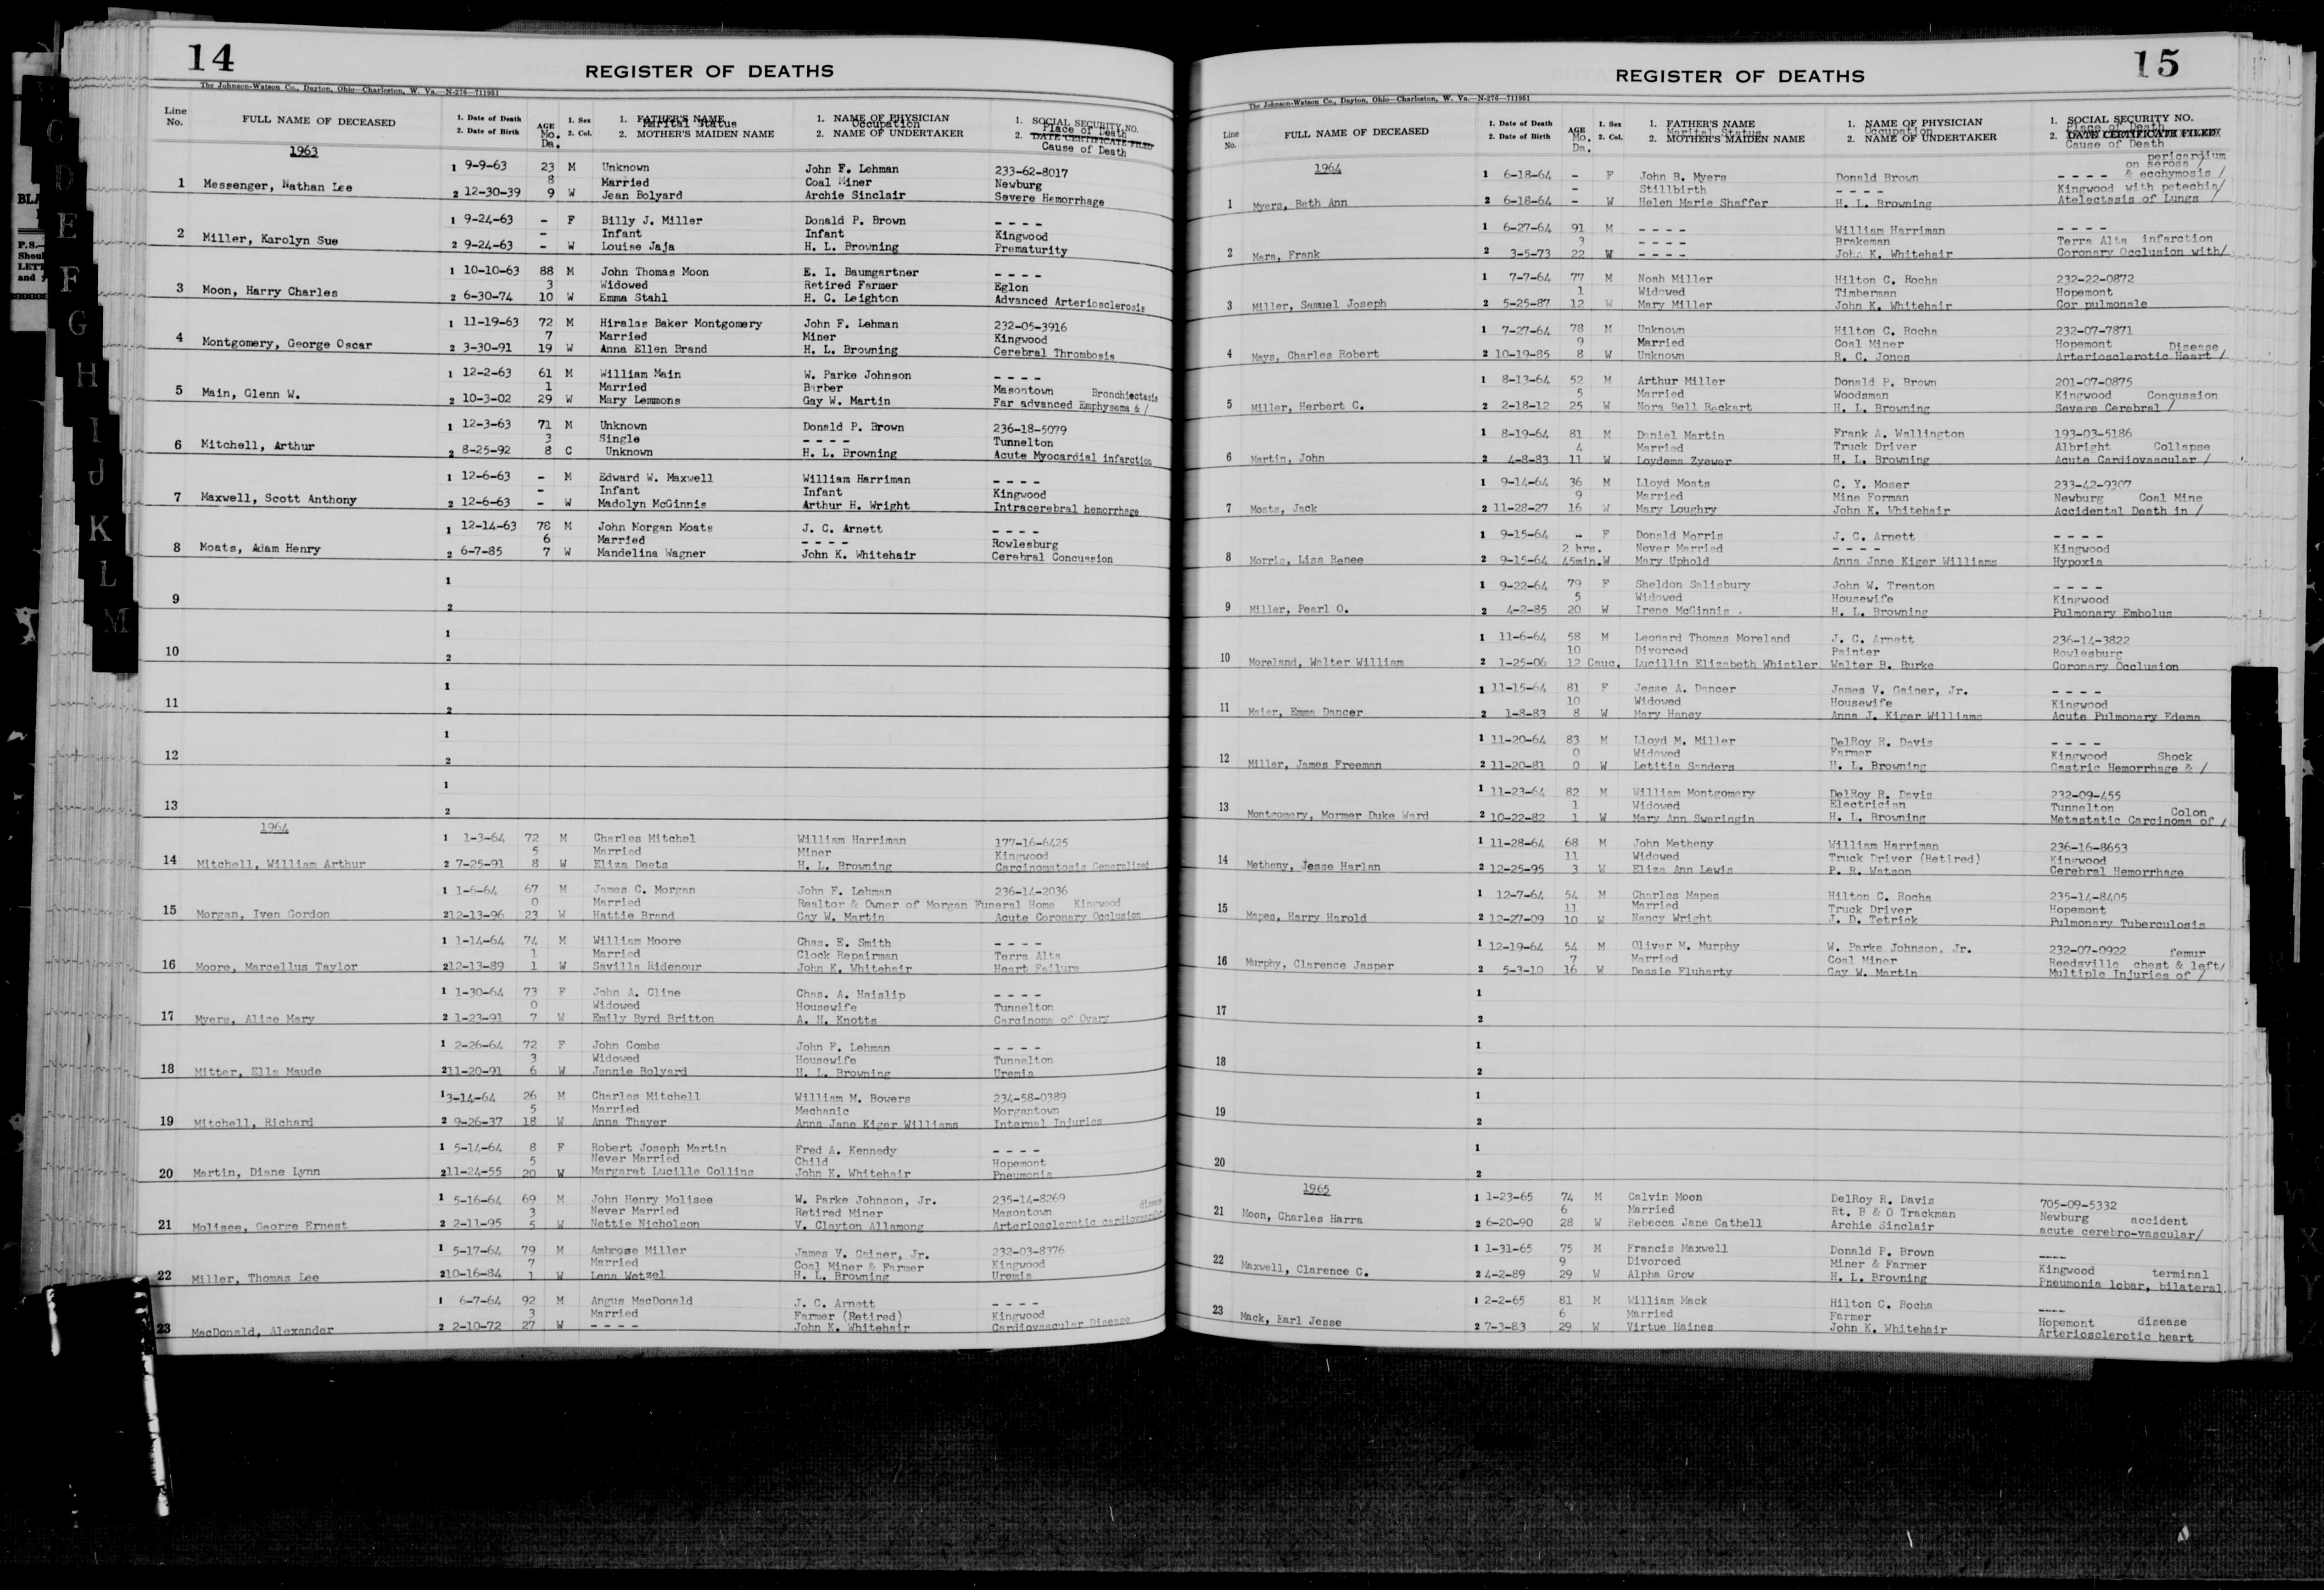 14
REGISTER OF DEATHS
The Johnson-Watson Co., Dayton, Ohio—Charleston, W. Va.—N-276—711951
Line No. FULL NAME OF DECEASED 1. Date of Death 2. Date of Birth AGE Mo. Da. 1. Sex 2. Col. 1. FATHER'S NAME Marital Status 2. MOTHER'S MAIDEN NAME 1. NAME OF PHYSICIAN Occupation 2. NAME OF UNDERTAKER 1. SOCIAL SECURITY NO. Place of Death 2. DATE CERTIFICATE FILED Cause of Death
1963
1 9-9-63 23 M Unknown John F. Lehman 233-62-8017
8 Married Coal Miner Newburg
1 Messenger, Nathan Lee 2 12-30-39 9 W Jean Bolyard Archie Sinclair Severe Hemorrhage
1 9-24-63 - F Billy J. Miller Donald P. Brown - - - -
- Infant Infant Kingwood
2 Miller, Karolyn Sue 2 9-24-63 - W Louise Jaja H. L. Browning Prematurity
1 10-10-63 88 M John Thomas Moon E. I. Baumgartner - - - -
3 Widowed Retired Farmer Eglon
3 Moon, Harry Charles 2 6-30-74 10 W Emma Stahl H. C. Leighton Advanced Arteriosclerosis
1 11-19-63 72 M Hiralas Baker Montgomery John F. Lehman 232-05-3916
7 Married Miner Kingwood
4 Montgomery, George Oscar 2 3-30-91 19 W Anna Ellen Brand H. L. Browning Cerebral Thrombosis
1 12-2-63 61 M William Main W. Parke Johnson - - - -
1 Married Barber Masontown Bronchiectasis
5 Main, Glenn W. 2 10-3-02 29 W Mary Lemmons Gay W. Martin Far advanced Emphysema & /
1 12-3-63 71 M Unknown Donald P. Brown 236-18-5079
3 Single - - - - Tunnelton
6 Mitchell, Arthur 2 8-25-92 8 C Unknown H. L. Browning Acute Myocardial infarction
1 12-6-63 - M Edward W. Maxwell William Harriman - - - -
- Infant Infant Kingwood
7 Maxwell, Scott Anthony 2 12-6-63 - W Madolyn McGinnis Arthur H. Wright Intracerebral hemorrhage
1 12-14-63 78 M John Morgan Moats J. C. Arnett - - - -
6 Married - - - - Rowlesburg
8 Moats, Adam Henry 2 6-7-85 7 W Mandelina Wagner John K. Whitehair Cerebral Concussion
1
9
2
1
10
2
1
11
2
1
12
2
1
13
2
1964
1 1-3-64 72 M Charles Mitchel William Harriman 177-16-6425
5 Married Miner Kingwood
14 Mitchell, William Arthur 2 7-25-91 8 W Eliza Deets H. L. Browning Carcinomatosis Generalized
1 1-6-64 67 M James C. Morgan John F. Lehman 236-14-2036
0 Married Realtor & Owner of Morgan Funeral Home Kingwood
15 Morgan, Iven Gordon 2 12-13-96 23 W Hattie Brand Gay W. Martin Acute Coronary Occlusion
1 1-14-64 74 M William Moore Chas. E. Smith - - - -
1 Married Clock Repairman Terra Alta
16 Moore, Marcellus Taylor 2 12-13-89 1 W Savilla Ridenour John K. Whitehair Heart Failure
1 1-30-64 73 F John A. Cline Chas. A. Haislip - - - -
0 Widowed Housewife Tunnelton
17 Myers, Alice Mary 2 1-23-91 7 W Emily Byrd Britton A. H. Knotts Carcinoma of Ovary
1 2-26-64 72 F John Combs John F. Lehman - - - -
3 Widowed Housewife Tunnelton
18 Mitter, Ella Maude 2 11-20-91 6 W Jennie Bolyard H. L. Browning Uremia
1 3-14-64 26 M Charles Mitchell William M. Bowers 234-58-0389
5 Married Mechanic Morgantown
19 Mitchell, Richard 2 9-26-37 18 W Anna Thayer Anna Jane Kiger Williams Internal Injuries
1 5-14-64 8 F Robert Joseph Martin Fred A. Kennedy - - - -
5 Never Married Child Hopemont
20 Martin, Diane Lynn 2 11-24-55 20 W Margaret Lucille Collins John K. Whitehair Pneumonia
1 5-16-64 69 M John Henry Molisee W. Parke Johnson, Jr. 235-14-8269
3 Never Married Retired Miner Masontown
21 Molisee, George Ernest 2 2-11-95 5 W Nettie Nicholson V. Clayton Allamong Arteriosclerotic cardiovascular
1 5-17-64 79 M Ambrose Miller James V. Gainer, Jr. 232-03-8376
7 Married Coal Miner & Farmer Kingwood
22 Miller, Thomas Lee 2 10-16-84 1 W Lena Wetzel H. L. Browning Uremia
1 6-7-64 92 M Angus MacDonald J. C. Arnett - - - -
3 Married Farmer (Retired) Kingwood
23 MacDonald, Alexander 2 2-10-72 27 W - - - - John K. Whitehair Cardiovascular Disease
15
REGISTER OF DEATHS
The Johnson-Watson Co., Dayton, Ohio—Charleston, W. Va.—N-276—711951
Line No. FULL NAME OF DECEASED 1. Date of Death 2. Date of Birth AGE Mo. Da. 1. Sex 2. Col. 1. FATHER'S NAME Marital Status 2. MOTHER'S MAIDEN NAME 1. NAME OF PHYSICIAN Occupation 2. NAME OF UNDERTAKER 1. SOCIAL SECURITY NO. Place of Death 2. DATE CERTIFICATE FILED Cause of Death
pericardium
on serosa /
1964
1 6-18-64 - F John B. Myers Donald Brown - - - - & ecchymosis /
- Stillbirth - - - - Kingwood with petechia/
1 Myers, Beth Ann 2 6-18-64 - W Helen Marie Shaffer H. L. Browning Atelectasis of Lungs /
1 6-27-64 91 M - - - - William Harriman - - - -
3 - - - - Brakeman Terra Alta infarction
2 Mars, Frank 2 3-5-73 22 W - - - - John K. Whitehair Coronary Occlusion with/
1 7-7-64 77 M Noah Miller Hilton C. Rocha 232-22-0872
1 Widowed Timberman Hopemont
3 Miller, Samuel Joseph 2 5-25-87 12 W Mary Miller John K. Whitehair Cor pulmonale
1 7-27-64 78 M Unknown Hilton C. Rocha 232-07-7871
9 Married Coal Miner Hopemont Disease
4 Mays, Charles Robert 2 10-19-85 8 W Unknown R. C. Jones Arteriosclerotic Heart /
1 8-13-64 52 M Arthur Miller Donald P. Brown 201-07-0875
5 Married Woodsman Kingwood Concussion
5 Miller, Herbert C. 2 2-18-12 25 W Nora Bell Reckart H. L. Browning Severe Cerebral /
1 8-19-64 81 M Daniel Martin Frank A. Wallington 193-03-5186
4 Married Truck Driver Albright Collapse
6 Martin, John 2 4-8-83 11 W Loydema Zyewer H. L. Browning Acute Cardiovascular /
1 9-14-64 36 M Lloyd Moats C. Y. Moser 233-42-9307
9 Married Mine Forman Newburg Coal Mine
7 Moats, Jack 2 11-28-27 16 W Mary Loughry John K. Whitehair Accidental Death in /
1 9-15-64 - F Donald Morris J. C. Arnett - - - -
2 hrs. Never Married - - - - Kingwood
8 Morris, Lisa Renee 2 9-15-64 45min. W Mary Uphold Anna Jane Kiger Williams Hypoxia
1 9-22-64 79 F Sheldon Salisbury John W. Trenton - - - -
5 Widowed Housewife Kingwood
9 Miller, Pearl O. 2 4-2-85 20 W Irene McGinnis . H. L. Browning Pulmonary Embolus
1 11-6-64 58 M Leonard Thomas Moreland J. C. Arnett 236-14-3822
10 Divorced Painter Rowlesburg
10 Moreland, Walter William 2 1-25-06 12 Cauc. Lucillin Elizabeth Whistler Walter B. Burke Coronary Occlusion
1 11-15-64 81 F Jesse A. Dancer James V. Gainer, Jr. - - - -
10 Widowed Housewife Kingwood
11 Maier, Emma Dancer 2 1-8-83 8 W Mary Haney Anna J. Kiger Williams Acute Pulmonary Edema
1 11-20-64 83 M Lloyd M. Miller DelRoy R. Davis - - - -
0 Widowed Farmer Kingwood Shock
12 Miller, James Freeman 2 11-20-81 0 W Letitia Sanders H. L. Browning Gastric Hemorrhage & /
1 11-23-64 82 M William Montgomery DelRoy R. Davis 232-09-455
1 Widowed Electrician Tunnelton Colon
13 Montgomery, Mormer Duke Ward 2 10-22-82 1 W Mary Ann Sweringin H. L. Browning Metastatic Carcinoma of /
1 11-28-64 68 M John Metheny William Harriman 236-16-8653
11 Widowed Truck Driver (Retired) Kingwood
14 Metheny, Jesse Harlan 2 12-25-95 3 W Eliza Ann Lewis P. R. Watson Cerebral Hemorrhage
1 12-7-64 54 M Charles Mapes Hilton C. Rocha 235-14-8405
11 Married Truck Driver Hopemont
15 Mapes, Harry Harold 2 12-27-09 10 W Nancy Wright J. D. Tetrick Pulmonary Tuberculosis
1 12-19-64 54 M Oliver M. Murphy W. Parke Johnson, Jr. 232-07-0922 femur
7 Married Coal Miner Reedsville chest & left/
16 Murphy, Clarence Jasper 2 5-3-10 16 W Dessie Fluharty Gay W. Martin Multiple Injuries of /
1
17
2
1
18
2
1
19
2
1
20
2
1965
1 1-23-65 74 M Calvin Moon DelRoy R. Davis 705-09-5332
6 Married Rt. B & O Trackman Newburg accident
21 Moon, Charles Harra 2 6-20-90 28 W Rebecca Jane Cathell Archie Sinclair acute cerebro-vascular/
1 1-31-65 75 M Francis Maxwell Donald P. Brown ----
9 Divorced Miner & Farmer Kingwood terminal
22 Maxwell, Clarence C. 2 4-2-89 29 W Alpha Grow H. L. Browning Pneumonia lobar, bilateral
1 2-2-65 81 M William Mack Hilton C. Rocha ----
6 Married Farmer Hopemont disease
23 Mack, Earl Jesse 2 7-3-83 29 W Virtue Haines John K. Whitehair Arteriosclerotic heart